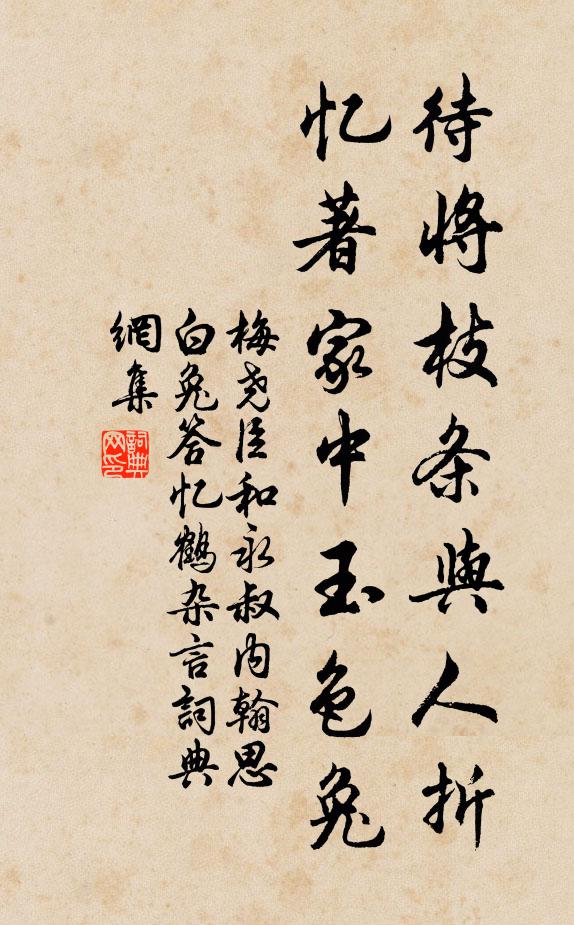 待将枝条與人折
忆著家中玉色兔
梅尧臣和永叔内翰思
白兔答忆鶴杂言詞典
網集
詞典
网印